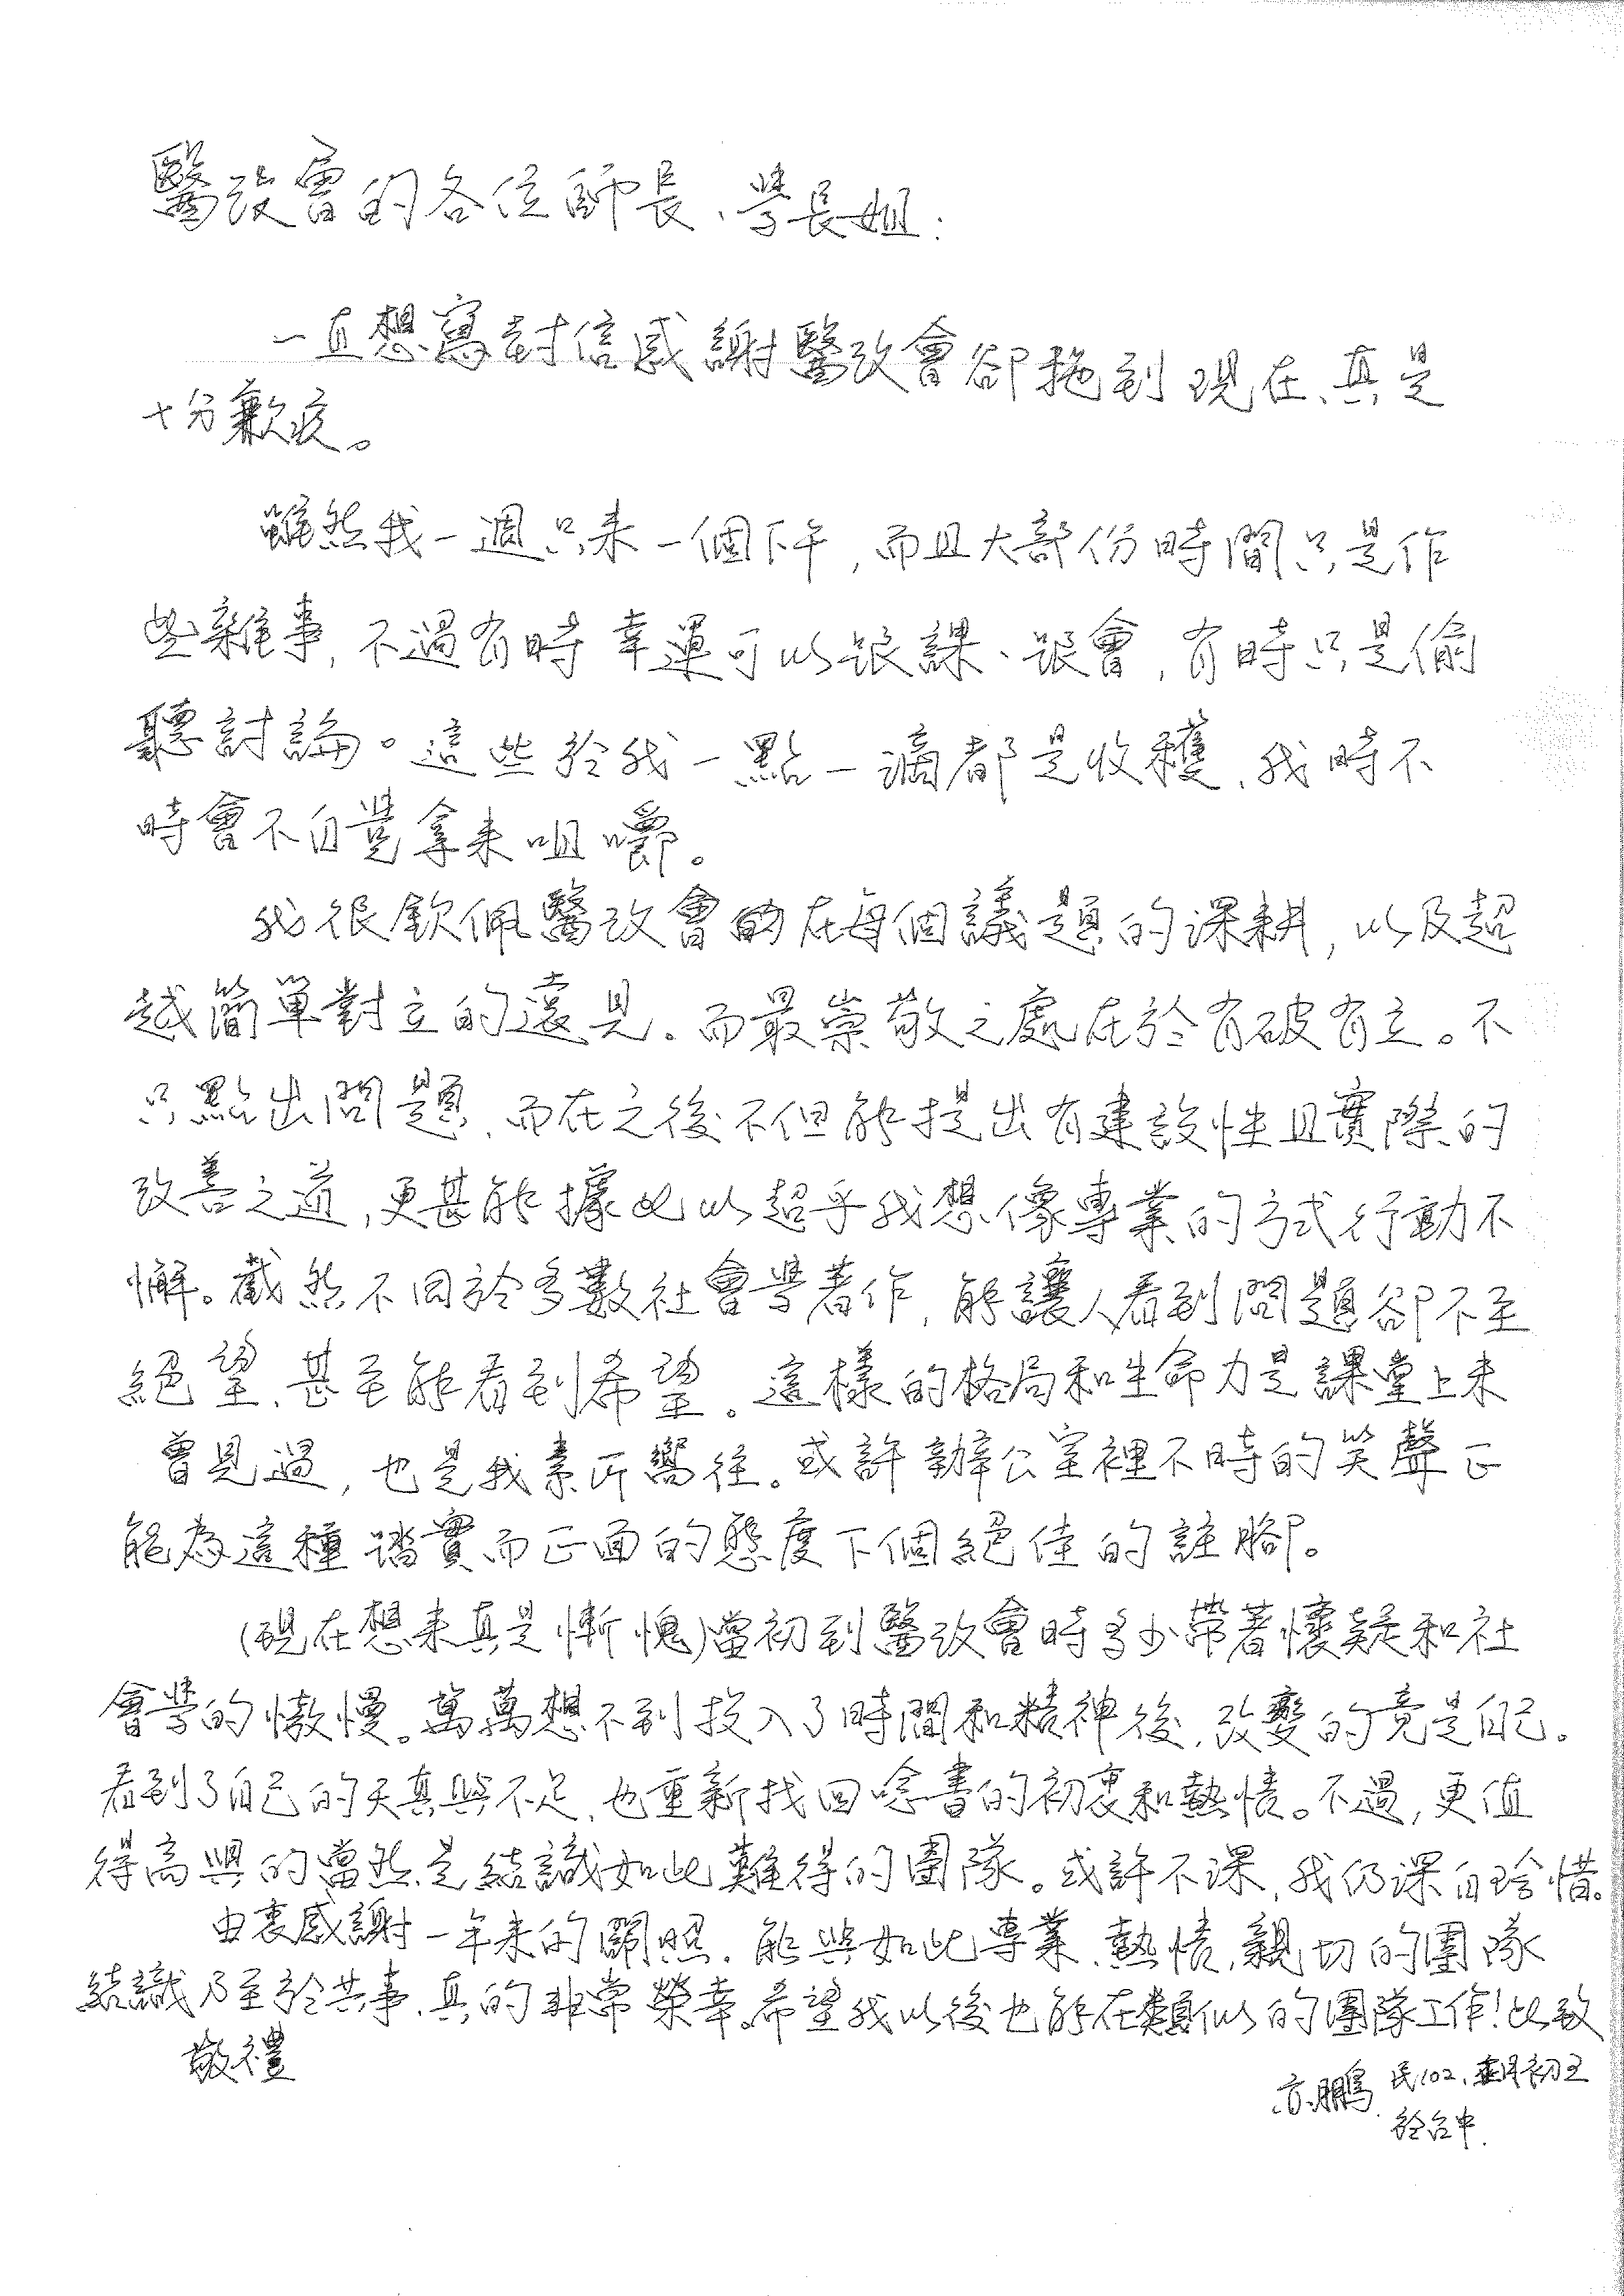 醫改會的各位師長、學長姐：
一直想寫封信感謝醫改會卻拖到現在、真是
十分歉疚。
雖然我一週只來一個下午，而且大部份時間只是作
些雜事，不過有時幸運可以跟課、跟會，有時只是偷
聽討論。這些於我一點一滴都是收穫，我時不
時會不自覺拿來咀嚼。
我很欽佩醫改會的在每個議題的深耕，以及超
越簡單對立的遠見。而最崇敬之處在於有破有立。不
只點出問題，而在之後不但能提出有建設性且實際的
改善之道，更甚能據此以超乎我想像專業的方式行動不
懈。截然不同於多數社會學著作，能讓人看到問題卻不至
絕望、甚至能看到希望。這樣的格局和生命力是課堂上未
曾見過，也是我素所嚮往。或許辦公室裡不時的笑聲正
能為這種踏實而正面的態度下個絕佳的註腳。
(現在想來真是慚愧)當初到醫改會時多少帶著懷疑和社
會學的傲慢。萬萬想不到投入了時間和精神後，改變的竟是自己。
看到了自己的天真與不足，也重新找回唸書的初衷和熱情。不過，更值
得高興的當然是結識如此難得的團隊。或許不深，我仍深自珍惜。
由衷感謝一年來的關照。能與如此專業、熱情、親切的團隊
結識乃至於共事、真的非常榮幸。希望我以後也能在類似的團隊工作！此致
敬禮
彥鵬 民102、初五
於台中.